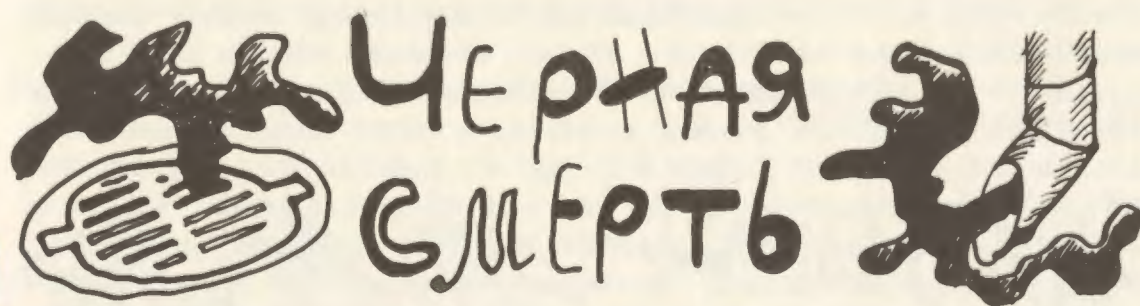 ЧЕРНАЯ
СМЕРТЬ